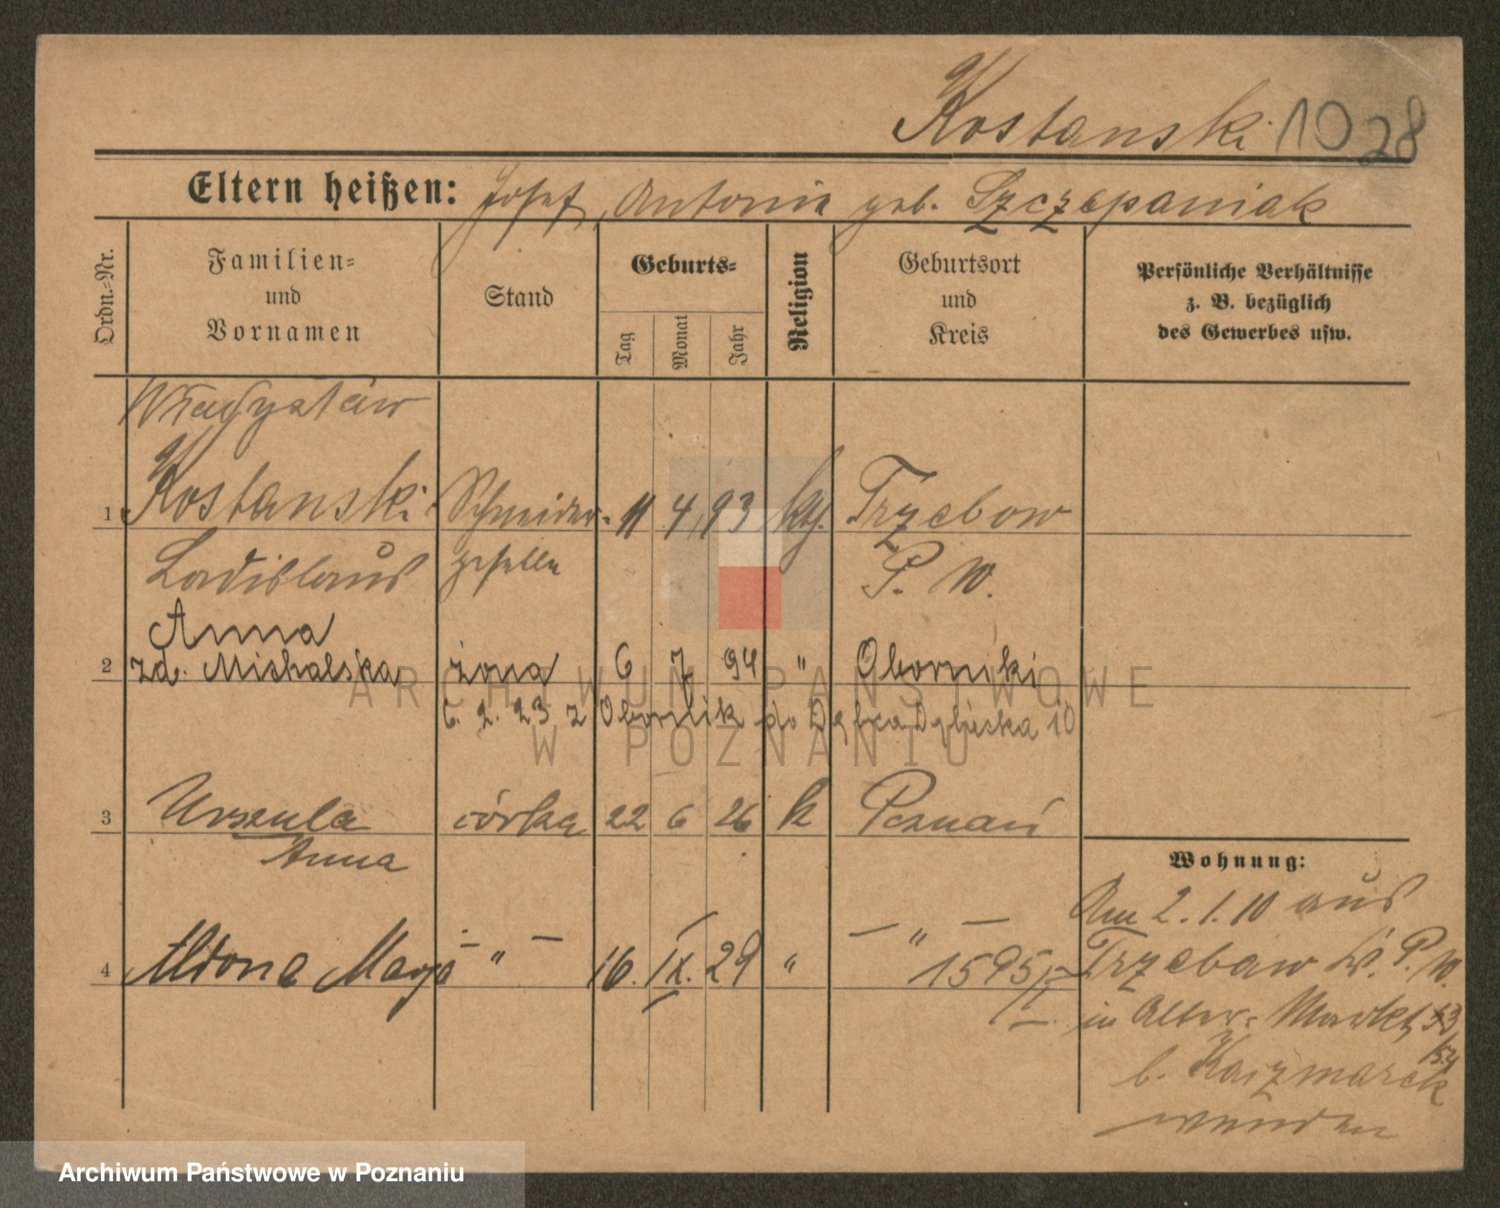 Kostanski 1028
Eltern heißen: Josef, Antonie geb. Szczepaniak
Ordn.-Nr.
Familien=
und
Vornamen
Stand
Geburts=
Tag
Monat
Jahr
Religion
Geburtsort
und
Kreis
Persönliche Verhältnisse
z. B. bezüglich
des Gewerbes usw.
Władysław
1 Kostanski Schneider- 11 4 93 kth. Trzebow
Ladislaus geselle P. W.
Anna
2 zd. Michalska żona 6 7 94 " Oborniki
6. 2. 23 z Obornik do Dąbrowskiego 10
3 Urszula córka 22 6 26 k Poznań
Anna
4 Aldona Marja — " — 16. IX. 29 " — " —
1595/II
Wohnung:
Am 2.1.10 aus
Trzebaw Kr. P. W.
in Alter Markt 53/
54
b. Kaczmarek
wenden
ARCHIWUM PAŃSTWOWE
W POZNANIU
Archiwum Państwowe w Poznaniu